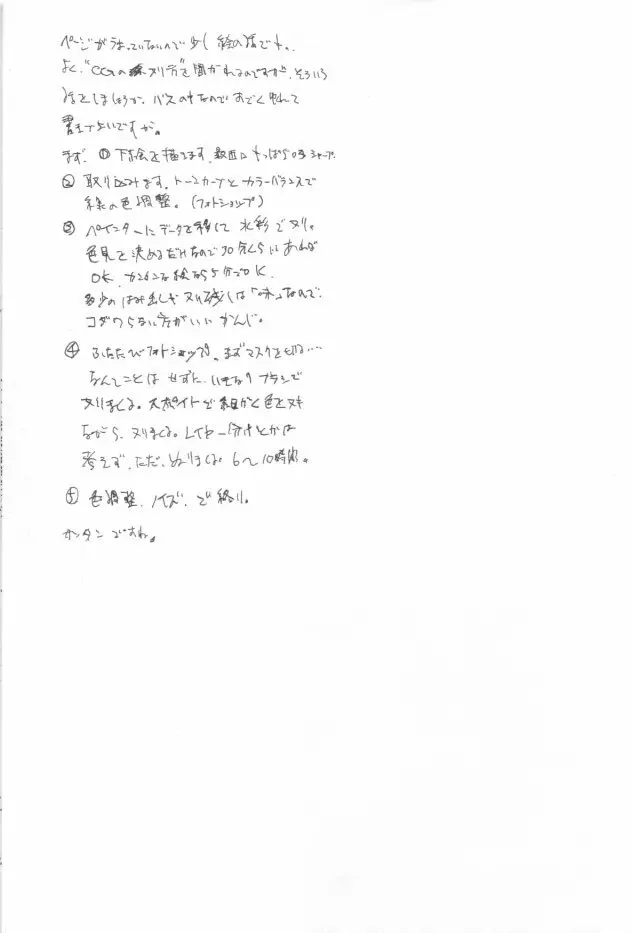 ページがうまっていないので少し絵の話でも。
よく、"CGのヌリ方"を聞かれるのですが、そういう
話をしましょうか、バスの中なのですごくゆれて
書きづらいですが。
まず、① 下絵を描きます。 もっぱら0.3シャープ。
② 取り込みます。トーンカーブとカラーバランスで
線の色調整。(フォトショップ)
③ ペインターにデータを移して 水彩でヌリ。
色見を決めるだけなので30分くらいあれば
OK。カンタンな絵なら5分でOK。
多少のはみ出しやヌリ残しは「味」なので、
コダワらない方がいいかんじ。
④ ふたたびフォトショップ。まずマスクを切る…
なんてことは せずに、いきなり ブラシで
ヌリまくる。スポイトで細かく色をヌキ
ながら、ヌリまくる。レイヤー分けとかは
考えず、ただ、ぬりまくる 6〜10時間。
⑤ 色調整、ノイズ、で終り。
カンタンですね。